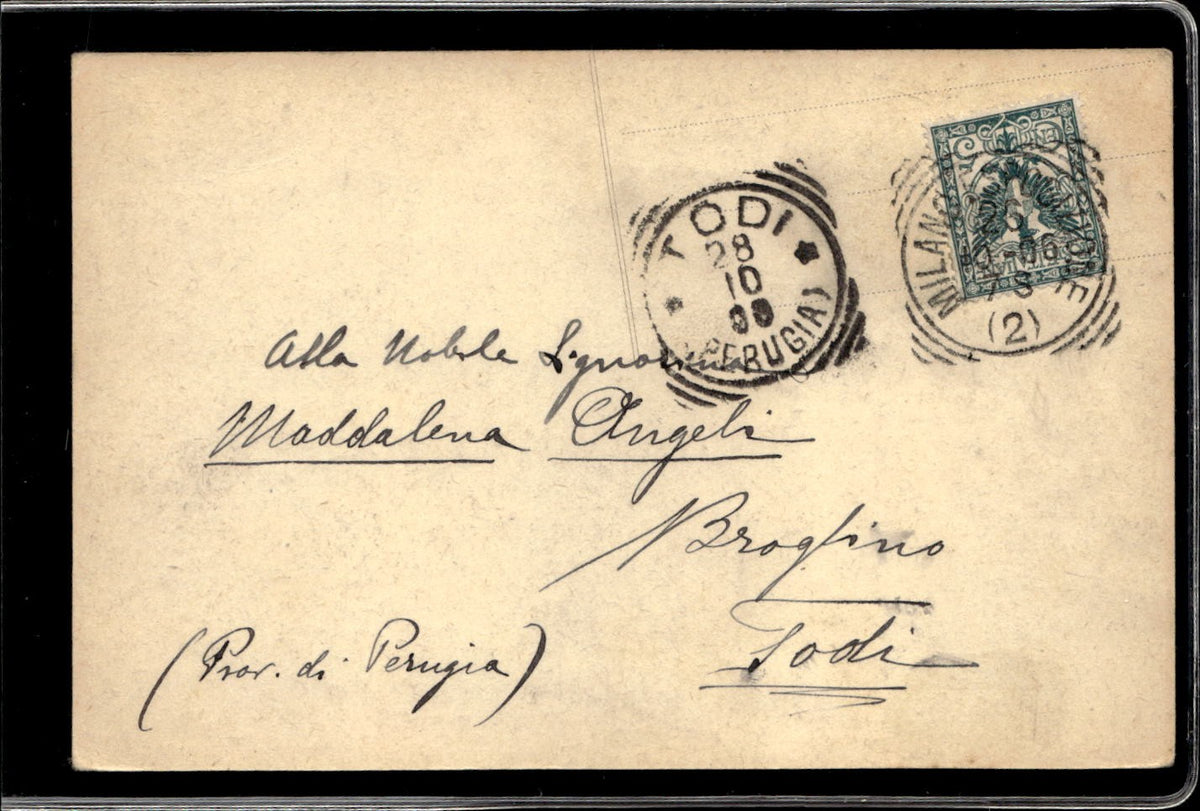 TODI
28
10
(PERUGIA)
MILANO
-06
(2)
Alla Nobile Signorina
Maddalena Angeli
Broglino
Todi
(Prov. di Perugia)